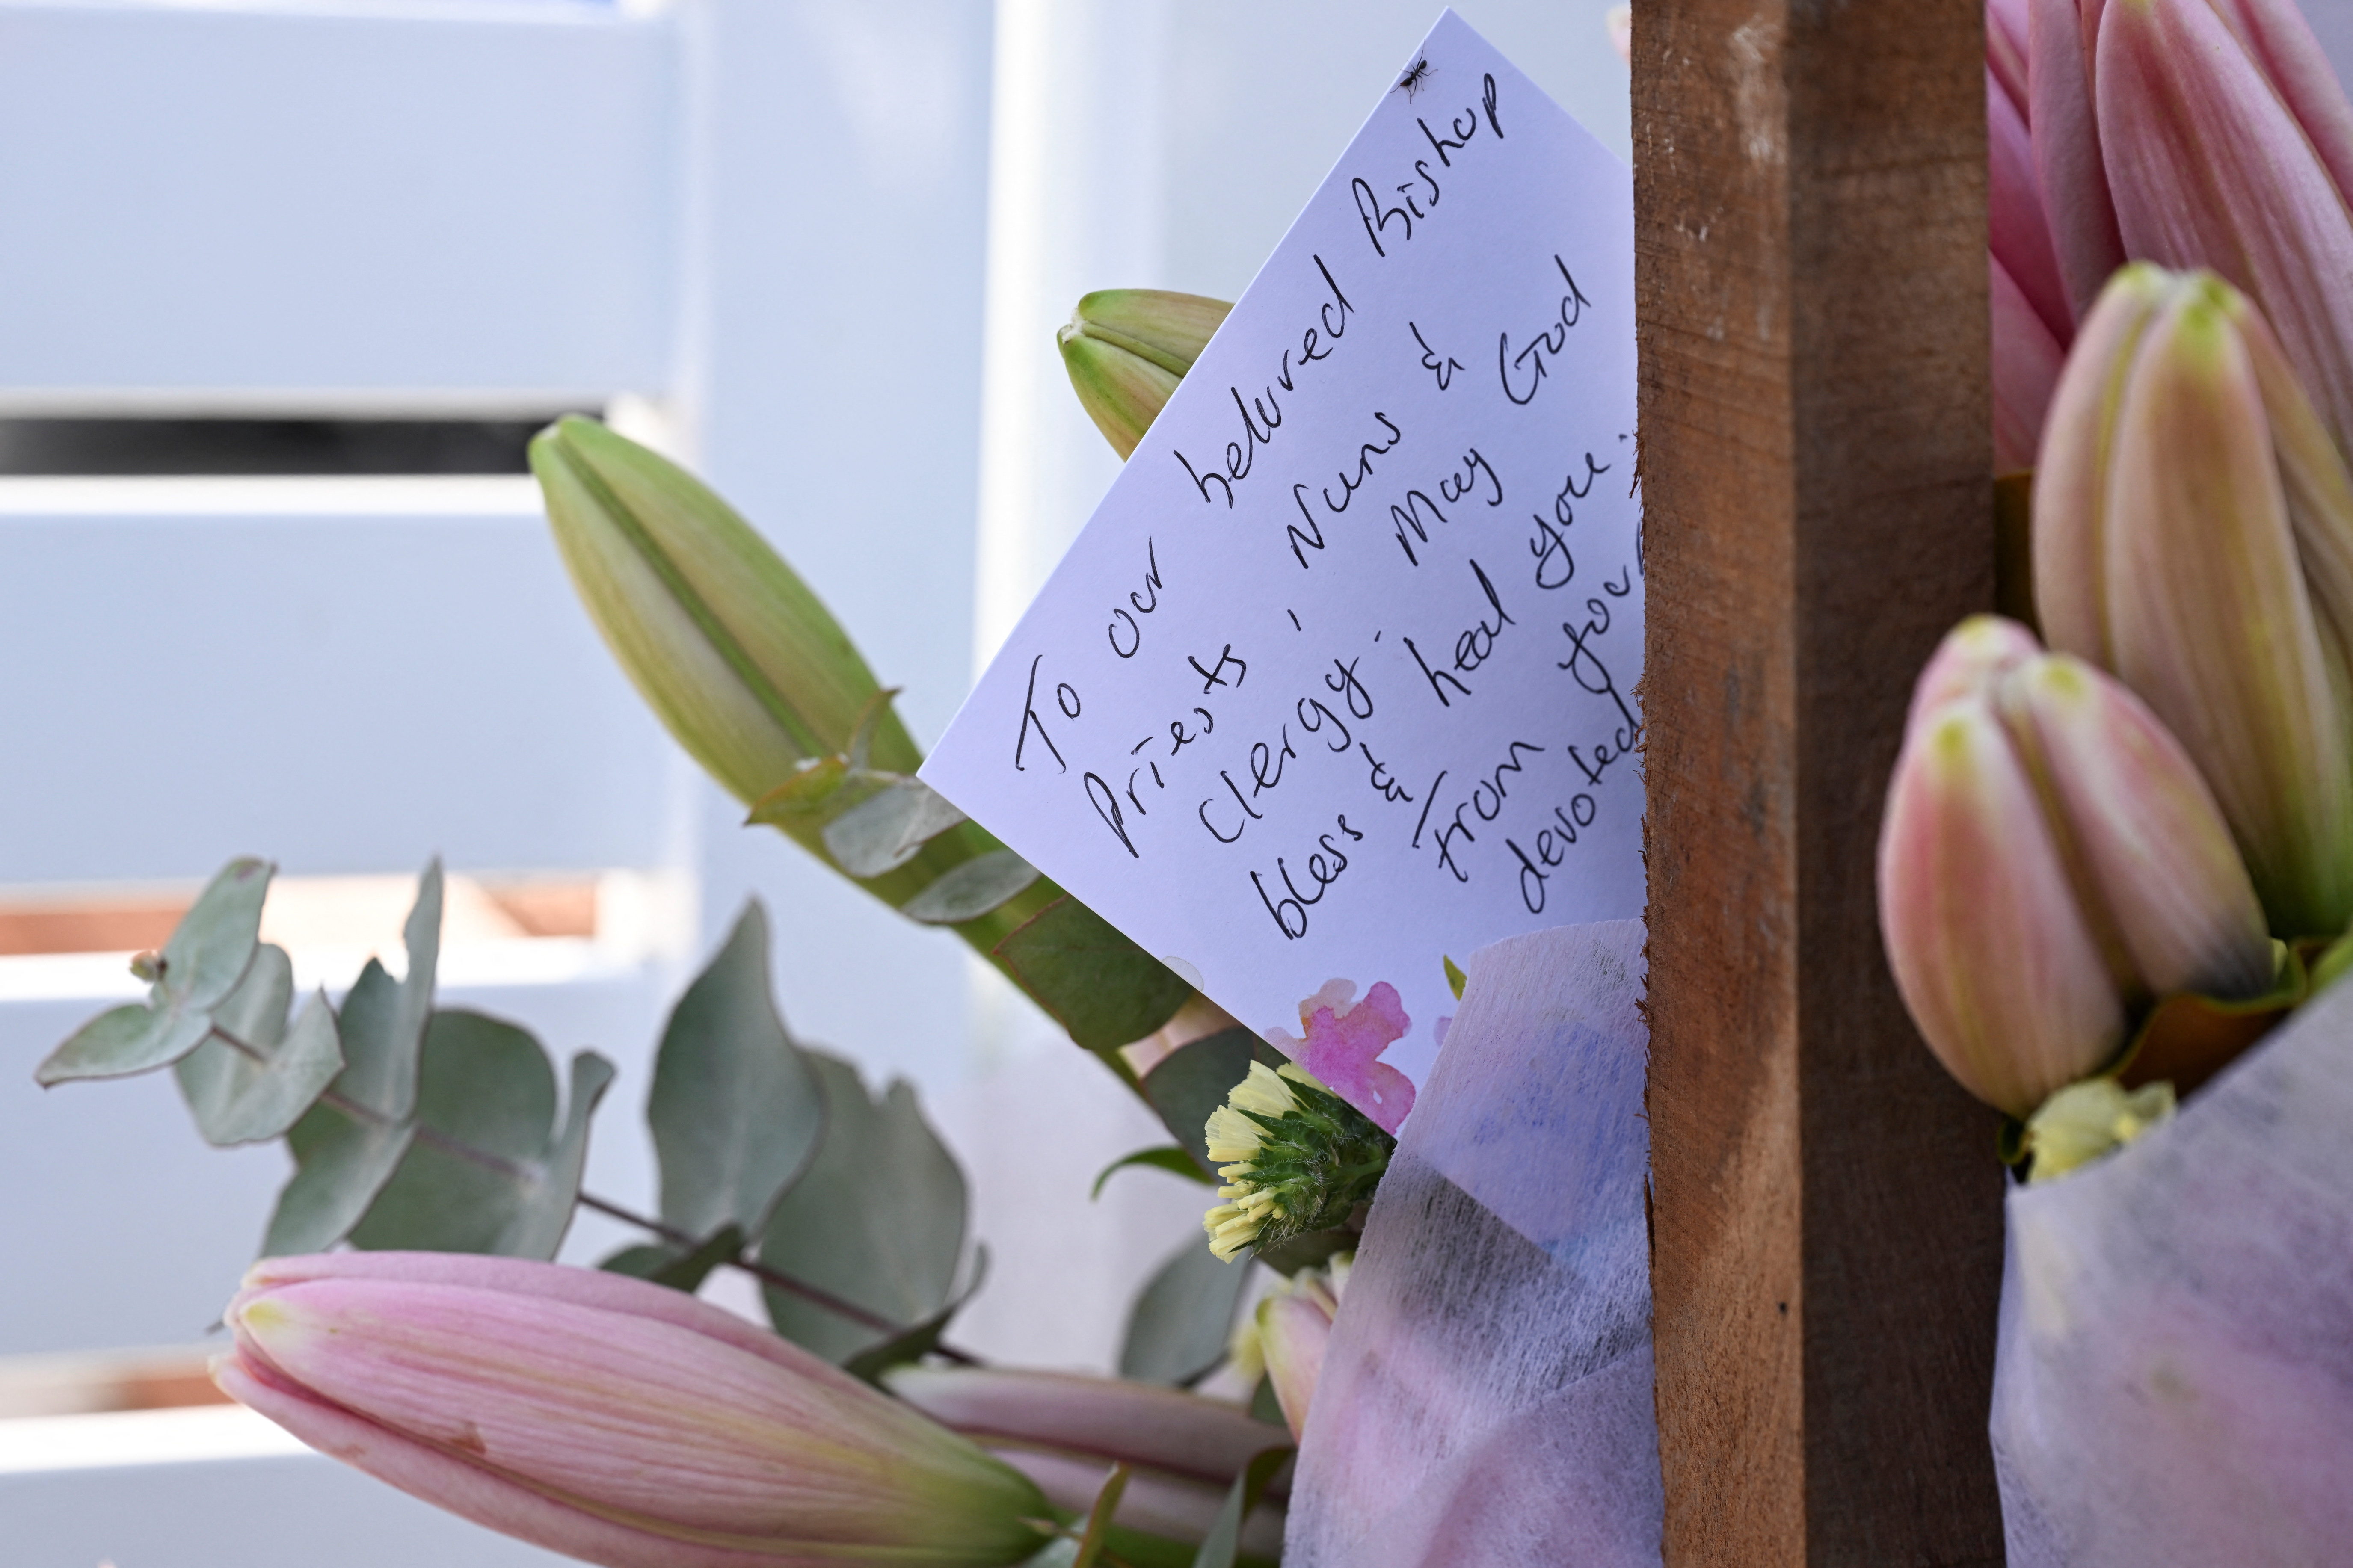 To our beloved Bishop
Priests, Nuns &
Clergy. May God
bless & heal you.
From
devoted